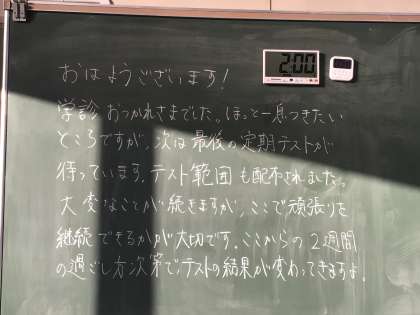 おはようございます!
2:00
学診おつかれさまでした。ほっと一息つきたい
ところですが、次は最後の定期テストが
待っています。テスト範囲も配布されました。
大変なことが続きますが、ここで頑張りを
継続できるかが大切です。ここからの2週間
の過ごし方次第でテストの結果が変わってきますよ!